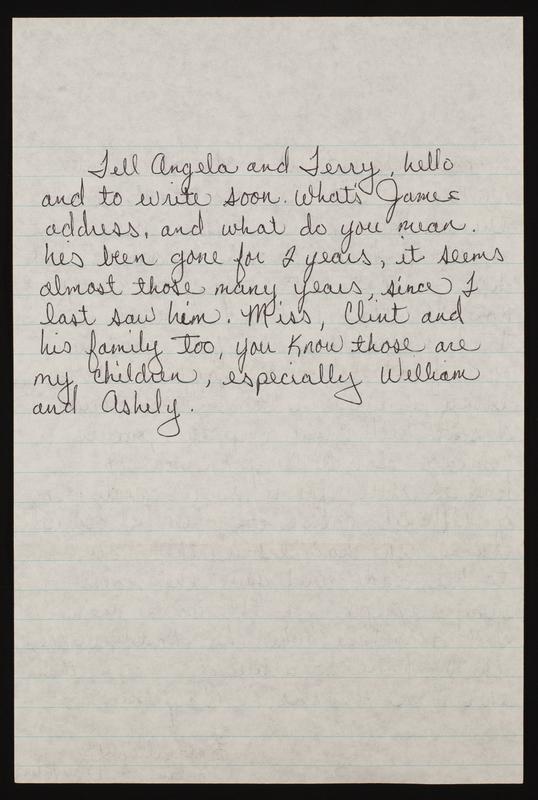 Tell Angela and Terry, hello
and to write soon. Whats James
address, and what do you mean.
hes been gone for 2 years, it seems
almost those many years, since I
last saw him. Miss, Clint and
his family too, you know those are
my children, especially William
and Ashely.